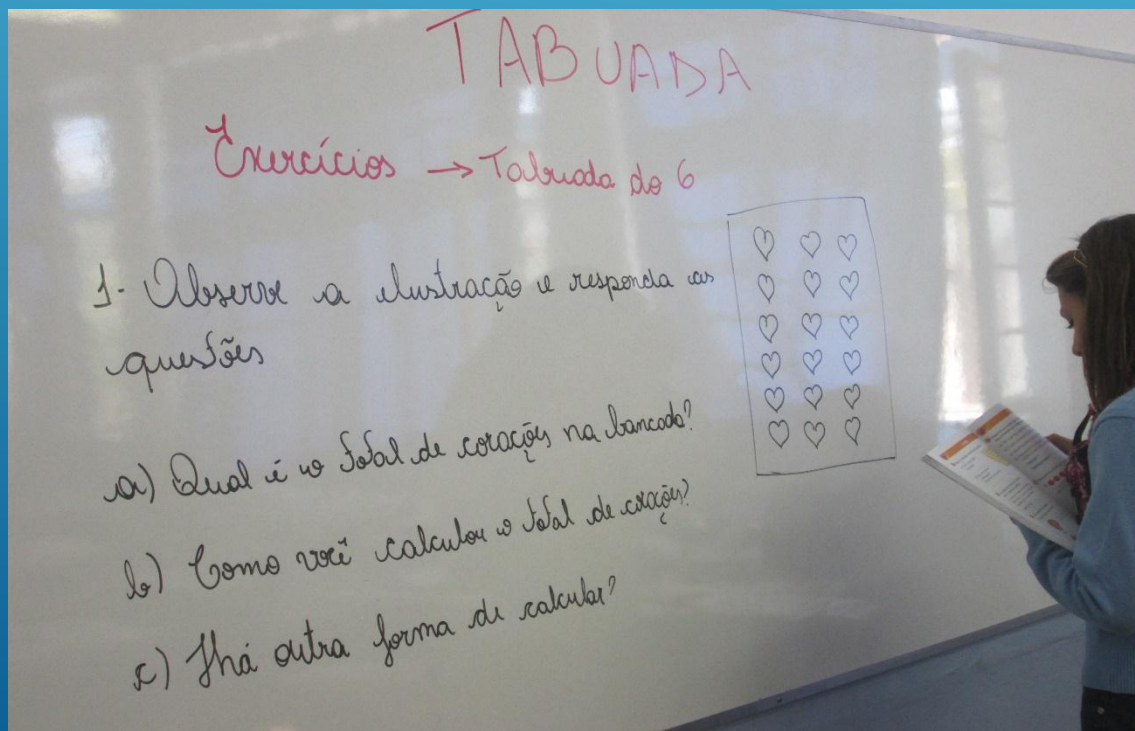 TABUADA
Exercícios → Tabuada do 6
1- Observe a ilustração e responda as
questões
a) Qual é o total de corações na bancada?
b) Como você calculou o total de corações?
c) Há outra forma de calcular?